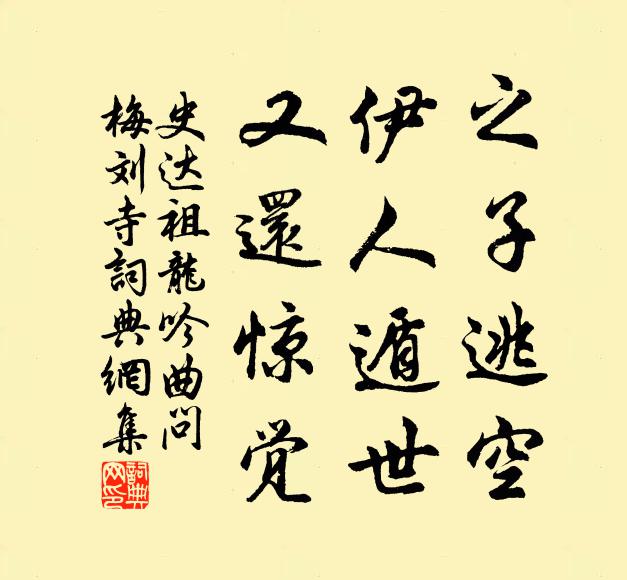 之子逃空
伊人遁世
又還惊觉
史达祖龍吟曲问
梅刘寺詞典網集
詞典
网印